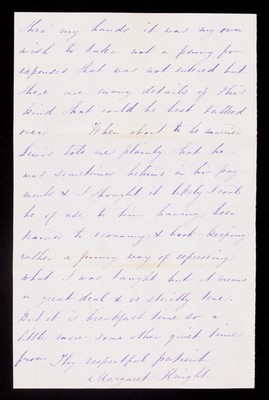 thro' my hands it was my own
wish to take not a penny for
expenses that was not entered but
there are many details of this
kind that could be best talked
over. When about to be married
Lewis told me plainly that he
was sometimes behind in his pay
ments & I thought it likely I could
be of use to him having been
trained to economy & book keeping
rather a funny way of expressing
what I was taught but it means
a great deal & is strictly true.
But it is breakfast time so a
little more some other quiet time
from Thy respectful patient
Margaret Knight